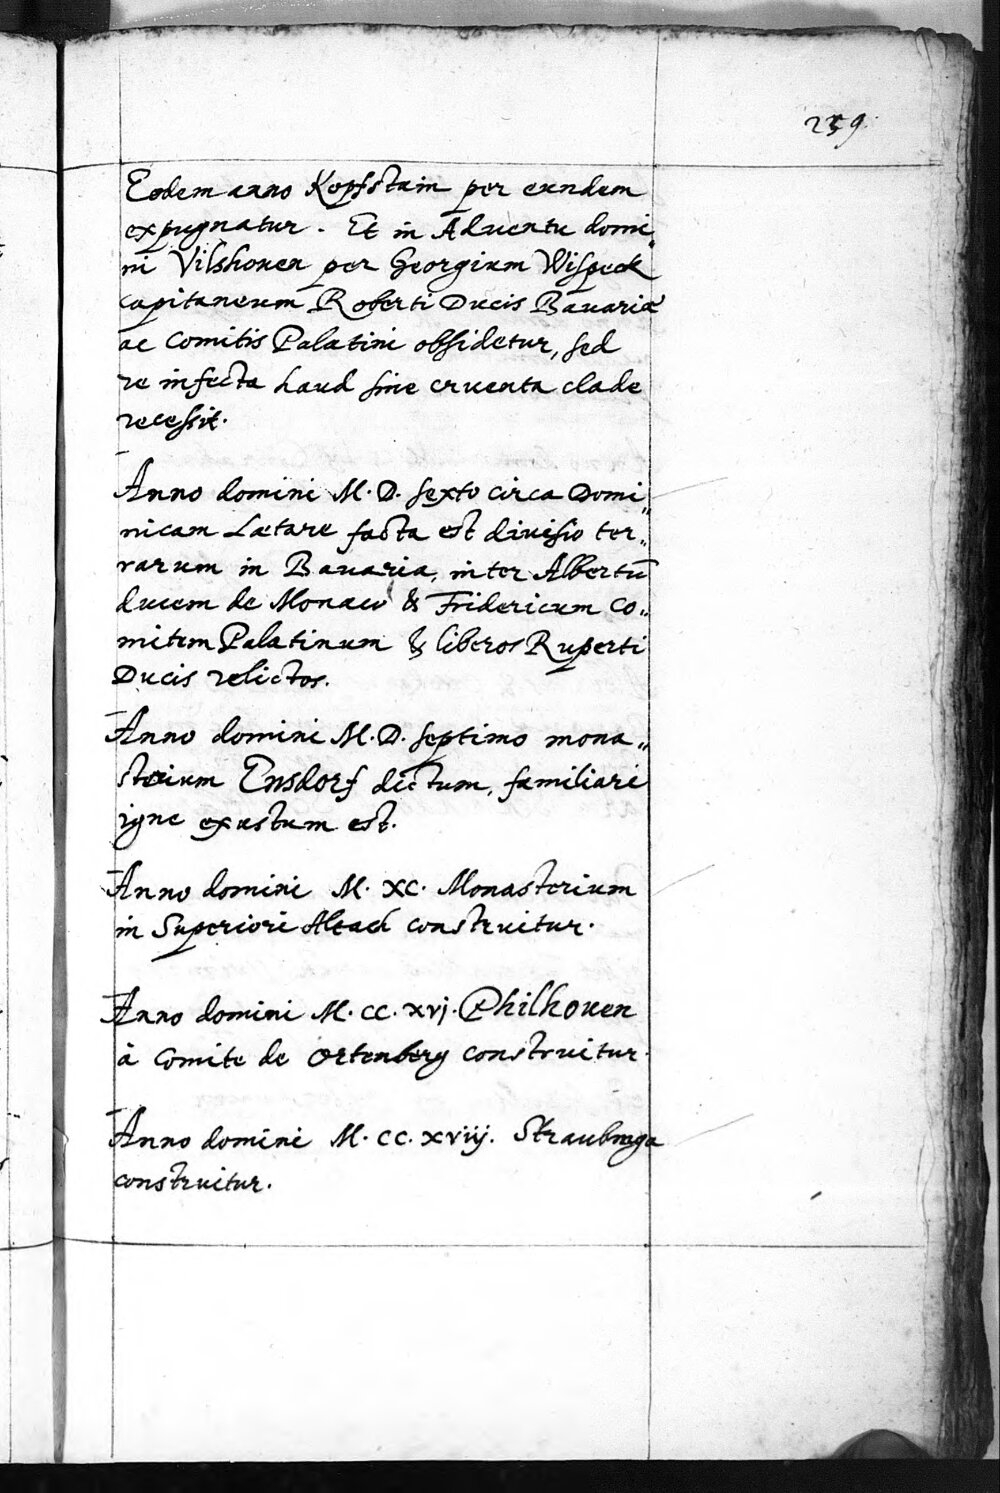 259.
Eodem anno Kopfstain per eundem
expugnatur. Et in Aduentu domi„
ni Vilshouen per Georgium Wispeck
capitaneum Roberti Ducis Bauariæ
ac Comitis Palatini obsidetur, sed
re infecta haud sine cruenta clade
recessit.
Anno domini M. D. sexto circa Domi„
nicam Lætare facta est diuisio ter„
rarum in Bauaria, inter Albertū
ducem de Monaco & Fridericum Co„
mitem Palatinum & liberos Ruperti
Ducis relictos.
Anno domini M. D. septimo mona„
sterium Ensdorf dictum, familiari
igne exustum est.
Anno domini M. XC. Monasterium
in Superiori Altach construitur.
Anno domini M. CC. xvj. Philhouen
à Comite de Ortenberg construitur.
Anno domini M. CC. xviij. Straubinga
construitur.